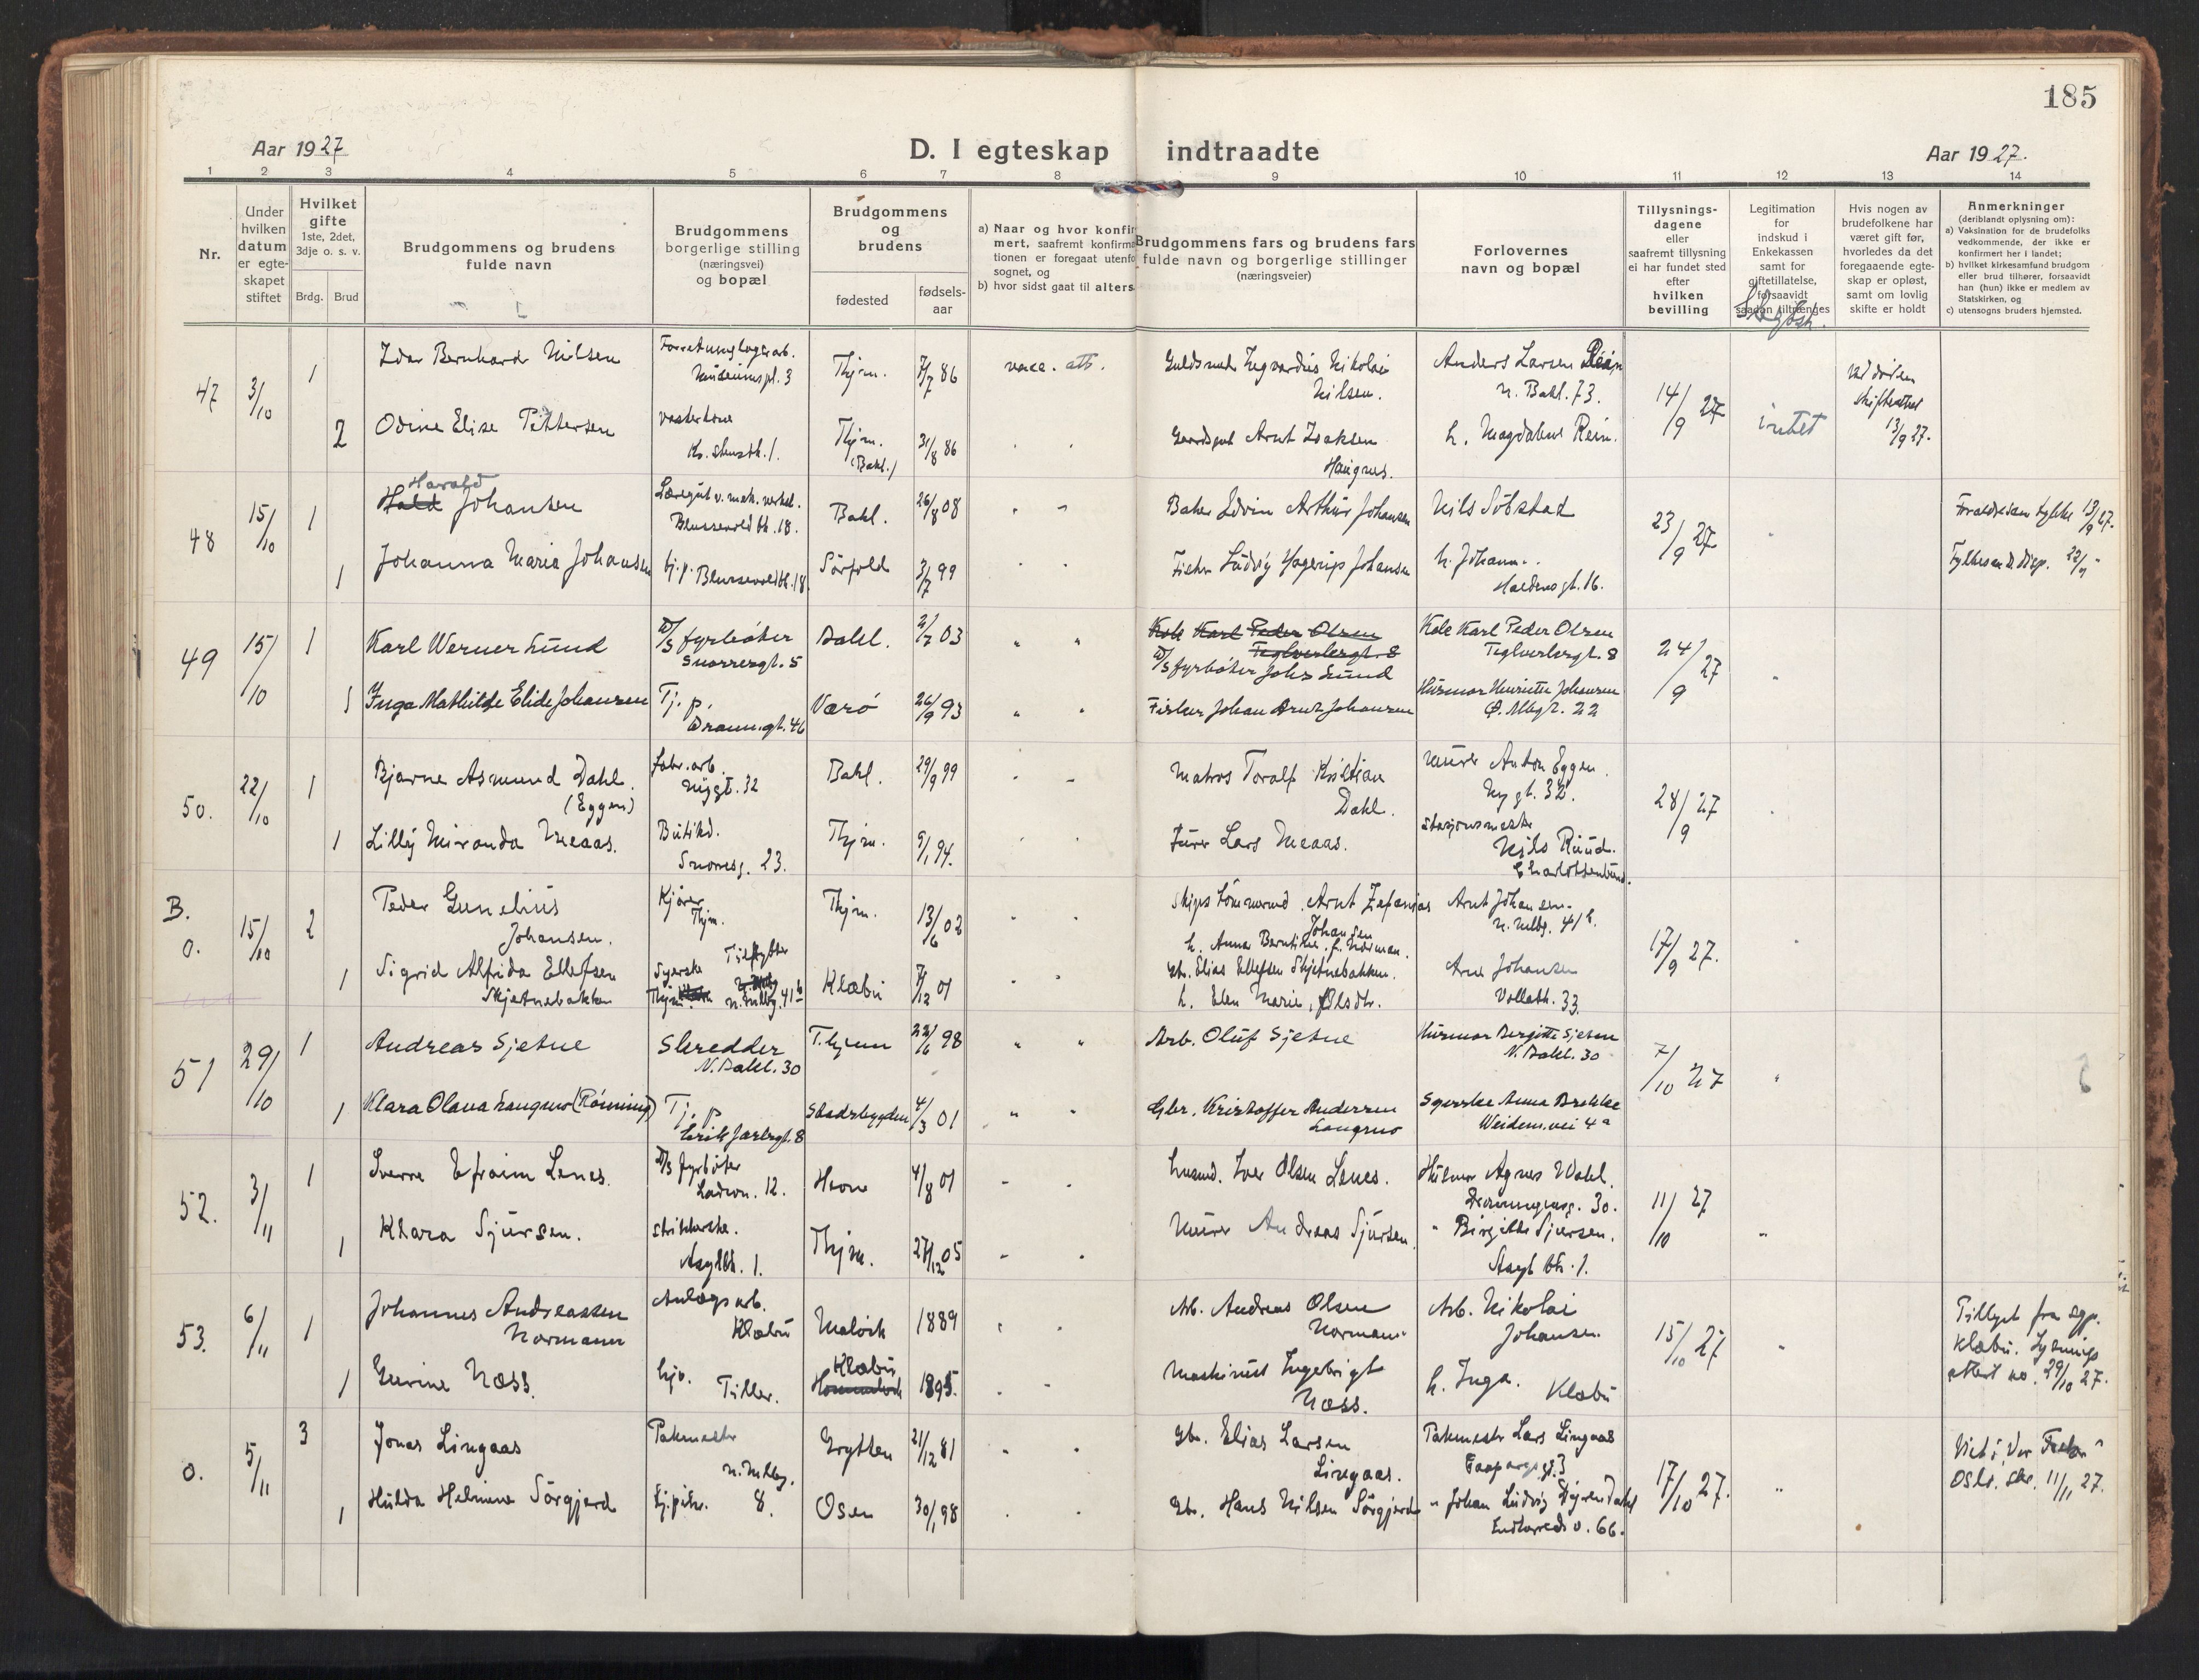 185
Aar 1927
D. I egteskap indtraadte
Aar 1927.
1 2 3 4 5 6 7 8 9 10 11 12 13 14
Nr.
Under
hvilken
datum
er egte-
skapet
stiftet
Hvilket
gifte
1ste, 2det,
3dje o. s. v.
Brdg. Brud
Brudgommens og brudens
fulde navn
Brudgommens
borgerlige stilling
(næringsvei)
og bopæl
Brudgommens
og
brudens
fødested
fødsels-
aar
a) Naar og hvor konfir
mert, saafremt konfirma
tionen er foregaat utenfo
sognet, og
b) hvor sidst gaat til alters.
Brudgommens fars og brudens fars
fulde navn og borgerlige stillinger
(næringsveier)
Forlovernes
navn og bopæl
Tillysnings-
dagene
eller
saafremt tillysning
ei har fundet sted
efter
hvilken
bevilling
Legitimation
for
indskud i
Enkekassen
samt for
giftetillatelse,
forsaavidt
saadan tiltrænges
Hvis nogen av
brudefolkene har
været gift før,
hvorledes da det
foregaaende egte-
skap er opløst,
samt om lovlig
skifte er holdt
Anmerkninger
(deriblandt oplysning om):
a) Vaksination for de brudefolks
vedkommende, der ikke er
konfirmert her i landet;
b) hvilket kirkesamfund brudgom
eller brud tilhører, forsaavidt
han (hun) ikke er medlem av
Statskirken, og
c) utensogns bruders hjemsted.
47 3/10 1 Idar Bernhard Nilsen
Museumspl. 3
Thjm. 7/7 86 vacc. att.
Nikolai
Nilsen.
Anders Larsen Rein
n. Bakl. 73.
14/9 27 intet
Skifteattest
13/9 27.
2 Odine Elise Pettersen
Thjm.
(Bakl.)
31/8 86
Arnt Isaksen
Haugnes.
h. Magdalene Rein.
48 15/10 1 Harald
Hald Johansen
Læregut v. mek. verksd.
Blussuvoldbk. 18.
Bakl. 26/8 08
Baker Edvin Arthur Johansen
Nils Sobstad
23/9 27
1 Johanna Marie Johansen
tj. p. Blussuvoldbk. 18
Sörfold 3/7 99
Fisker Ludvig Johansen
h. Johanna
Fylkesm. disp. 22/9
49 15/10 1 Karl Werner Lund
D/S fyrböter
Snorresgt. 5
Bakl. 2/7 03
Kole Karl Peder Olsen
Teglverksgt. 8
D/S fyrböter Johs Lund
Kole Karl Peder Olsen
Teglverksgt. 8
24/9 27
1 Inga Mathilde Elide Johansen
Tj. p.
Dronn.gt. 46
Værö 26/9 93
Fisker Johan Arnt Johansen
Husmor Henriette Johansen
Ø. Mbgt. 22
50. 22/10 1 Bjarne Asmund Dahl.
(Eggen)
fabr. arb.
Nygt. 32
Bakl. 29/9 99
Matros Toralf Kristian
Dahl.
Murer Anton Eggen
Nygt. 32.
28/9 27
1 Lilly Miranda Meaas.
Butikd.
Snorresg. 23.
Thjm. 9/1 94.
Furer Lars Meaas.
Stasjonsmester
Nils Ruud.
Charlottenlund.
B.
o. 15/10 2 Peder Gunelius
Johansen.
Kjörer
Thjm.
Thjm. 13/6 02
Skips tömmermand Arnt Zefanias
Johansen
h. Anna Berntine f. Norman.
Arnt Johansen
n. Mlbg. 41 b.
17/9 27.
1 Sigrid Alfrida Ellefsen
Skjetnebakken
Syerske Tilflytter
Thjm. n. Mlbg. 41 b
Klæbu 7/12 01
Gbr. Elias Ellefsen Skjetnebakken.
h. Elen Marie, f. Olsdtr.
Arne Johansen
Vollabk. 33.
51 29/10 1 Andreas Sjetne
Skredder
N. Bakl. 30
T.hjem 22/6 98
Arb. Oluf Sjetne
Husmor Bergitte Sjetne
N. Bakl. 30
7/10 27
1 Klara Olava Langmo (Rönning)
Tj. p.
Erik Jarlsgt. 8
Stadsbygden 4/3 01
Gbr. Kristoffer Andersen
Langmo
Syerske Anna Brekke
Weidem.vei 4 a
52. 3/11 1 Sverre Efraim Lenes.
D/S fyrböter
Ladevn. 12.
Hevne 4/8 01
Husmd. Iver Olsen Lenes.
Husmor Agnes Wahl.
Dronningensg. 30.
11/10 27
1 Klara Sjursen.
Asylbk. 1.
Thjm. 27/12 05
Murer Andreas Sjursen
" Birgitte Sjursen.
Asylbk. 1.
53. 6/11 1 Johannes Andreassen
Normann
Anlægsarb.
Klæbu
Malvik 1889
Arb. Andreas Olsen
Normann
Arb. Nikolai
Johansen
15/10 27
Tillyst fra sgp.
Klæbu. Lysnings
attest no. 29/10 27.
1 Gurine Næss.
hjv.
Tiller.
Klæbu
1895.
Maskinist Ingebrigt
Næss.
h. Inga. Klæbu
o. 5/11 3 Jonas Lingaas
Pakmester
n. Mlbg.
8.
Grytten 21/12 81
Gbr. Elias Larsen
Lingaas.
Pakmester Lars Lingaas
17/10 27.
Viet i Vor Frelser
Oslo. skr. 11/11 27.
1 Hulda Helmine Sörgjerd
Osen 30/1 98
Gbr. Hans Nilsen Sörgjerd
" Johan Ludvig
Indherreds v. 66.